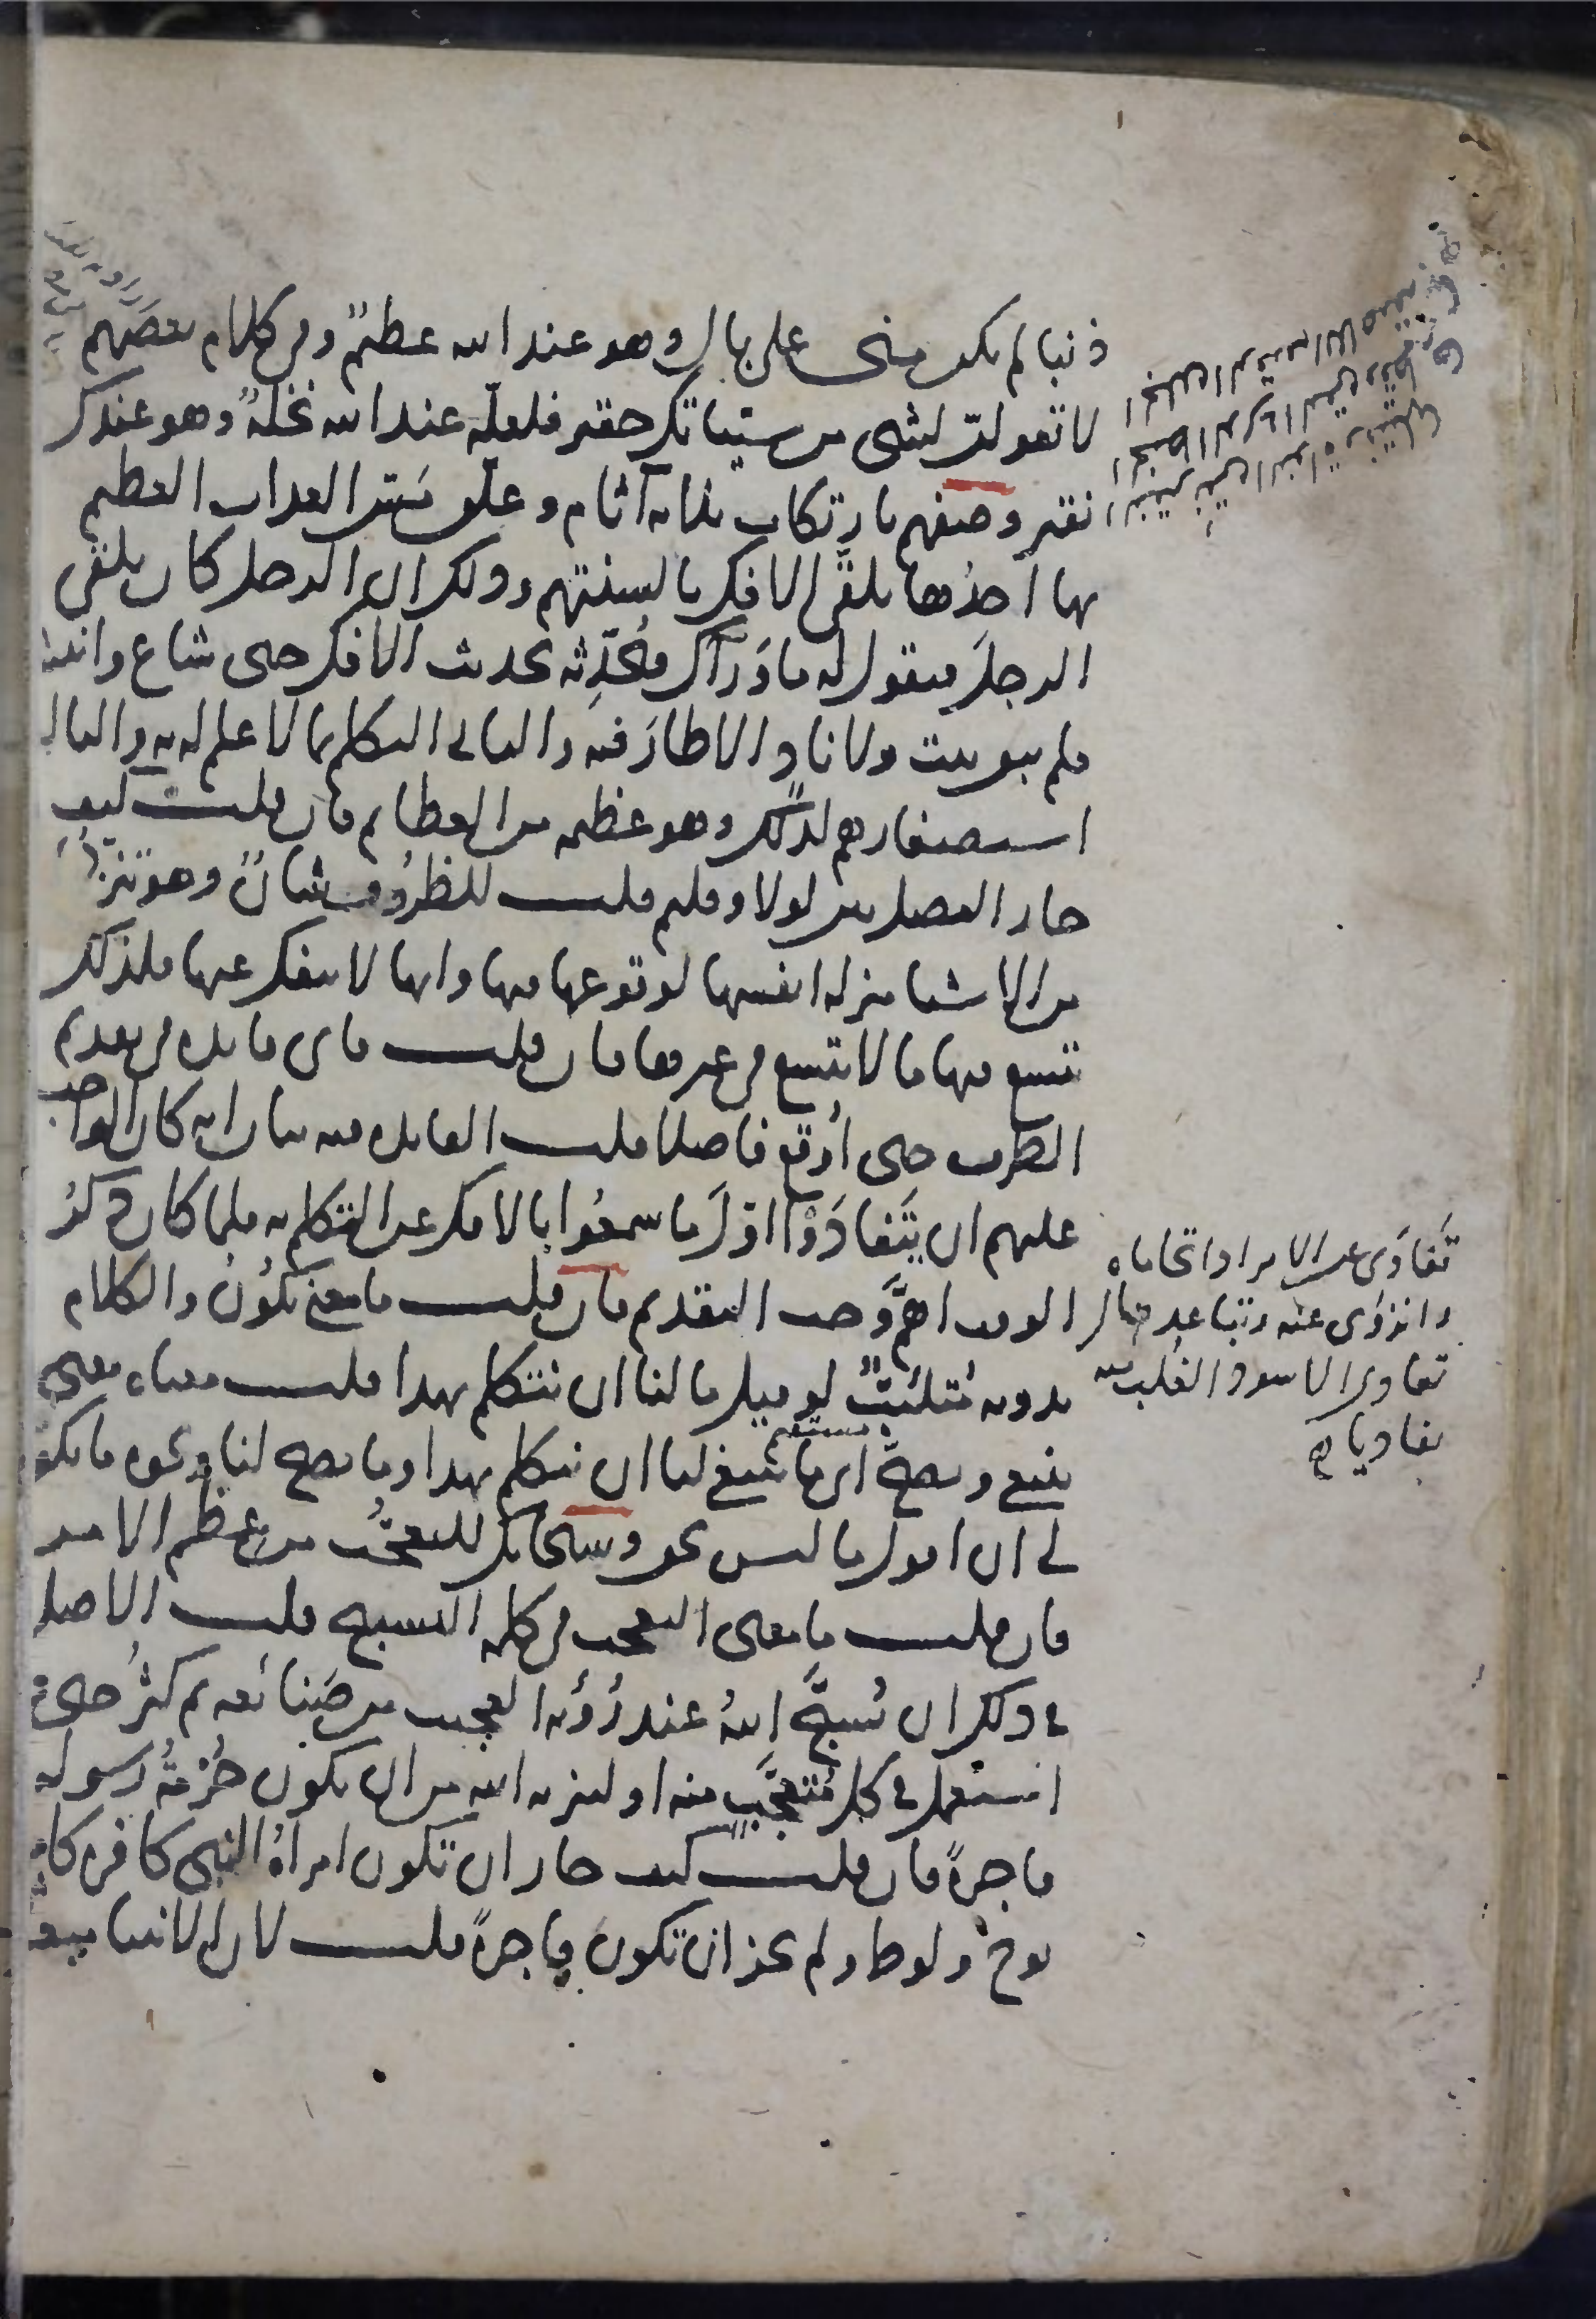 ذنبا لم يكن مني على بال وهو عند الله عظيم وفي كلام بعضهم
لا تقولن لشيء من سيئاتك حقير فلعله عند الله نخلة وهو عندك
نقير وصفهم بارتكاب ثلاثة آثام وعلق مس العذاب العظيم
بها احدها تلقي الافك بالسنتهم وذلك ان الرجل كان يلقى
الرجل فيقول له ما وراك فيحدثه بحديث الافك حتى شاع وانتشر
فلم يبق بيت ولا ناد الا طار فيه والثاني التكلم بما لا علم له به والثالث
استصغارهم لذلك وهو عظيمة من العظايم فان قلت كيف
جاز الفصل بين لولا وقلتم قلت للظروف شان وهو تنزلها
من الاشيا منزلة انفسها لوقوعها فيها وانها لا ينفك عنها فلذلك
يتسع فيها ما لا يتسع في غيرها فان قلت فاي فايدة في تقديم
الظرف حتى اوقع فاصلا قلت الفايدة فيه بيان انه كان الواجب
عليهم ان يتفادوا اول ما سمعوا بالافك عن التكلم به فلما كان ذكر
الوقت اهم وجب التقديم فان قلت ما معنى يكون والكلام
بدونه متلئب لو قيل ما لنا ان نتكلم بهذا قلت معناه معنى
ينبغي ويصح اي ما ينبغي لنا ان نتكلم بهذا وما يصح لنا ونحوه ما يكون
مستقيم
لي ان اقول ما ليس بحق وسبحانك للتعجب من عظم الامر
فان قلت ما معنى التعجب في كلمة التسبيح قلت الاصل
في ذلك ان يسبح الله عند رؤية العجيب من صنائعه ثم كثر حتى
استعمل في كل متعجب منه او لتنزيه الله من ان يكون حرمة رسوله
فاجرة فان قلت كيف جاز ان تكون امراة النبي كافرة كامراة
نوح ولوط ولم يجز ان تكون فاجرة قلت لان الانبيا مبعوثون
تفادى عن الامر اذا تحاماه
وانزوى عنه وتباعد قال
تفادى الاسود الغلب منه
تفاديا